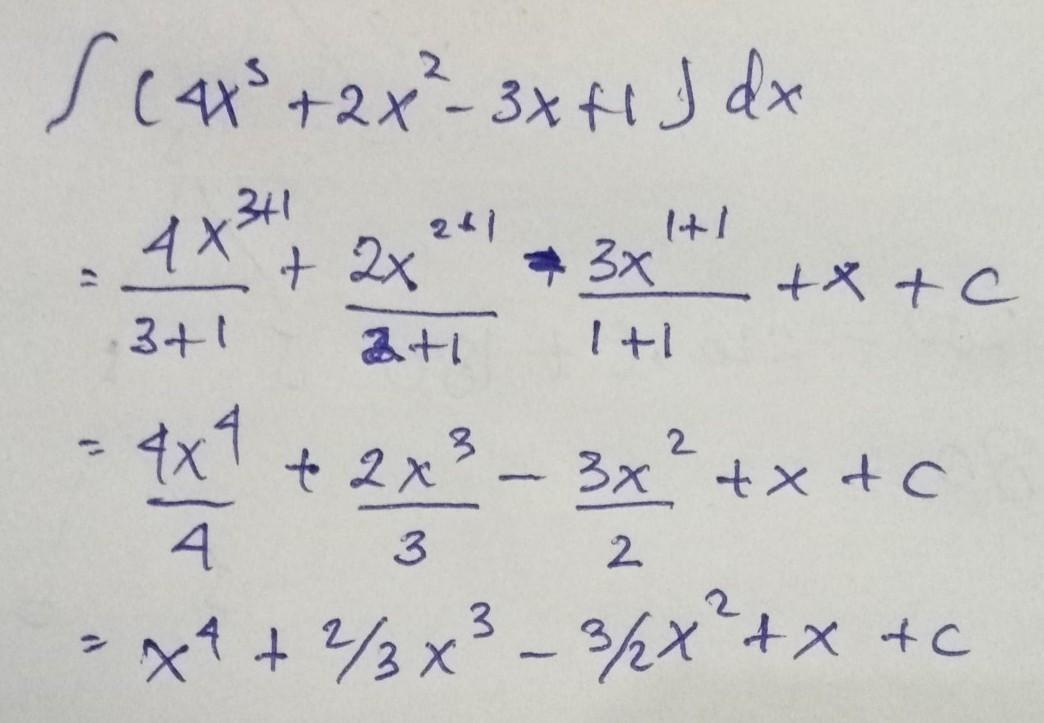 ∫ (4x³ + 2x² - 3x + 1) dx
= 4x³⁺¹/3+1 + 2x²⁺¹/2+1 - 3x¹⁺¹/1+1 + x + c
= 4x⁴/4 + 2x³/3 - 3x²/2 + x + c
= x⁴ + 2/3 x³ - 3/2 x² + x + c